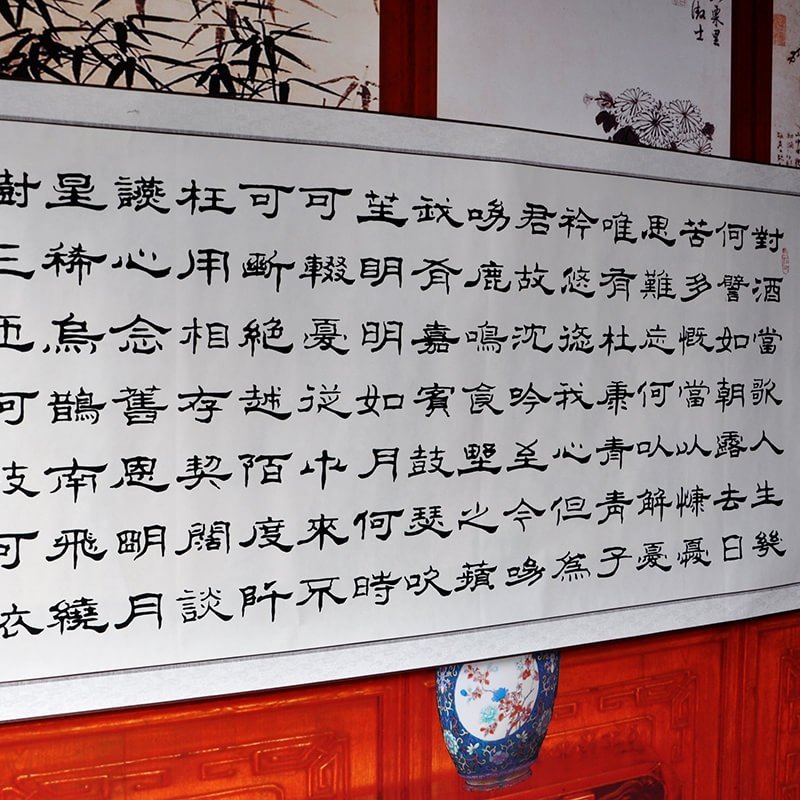 對酒當歌人生幾
何譬如朝露去日
苦多慨當以慷憂
思難忘何以解憂
唯有杜康青青子
衿悠悠我心但爲
君故沈吟至今呦
呦鹿鳴食野之蘋
我有嘉賓鼓瑟吹
笙明明如月何時
可輟憂從中來不
可斷絕越陌度阡
枉用相存契闊談
讌心念舊恩明月
星稀烏鵲南飛繞
樹三匝何枝可依
栗里
傲士